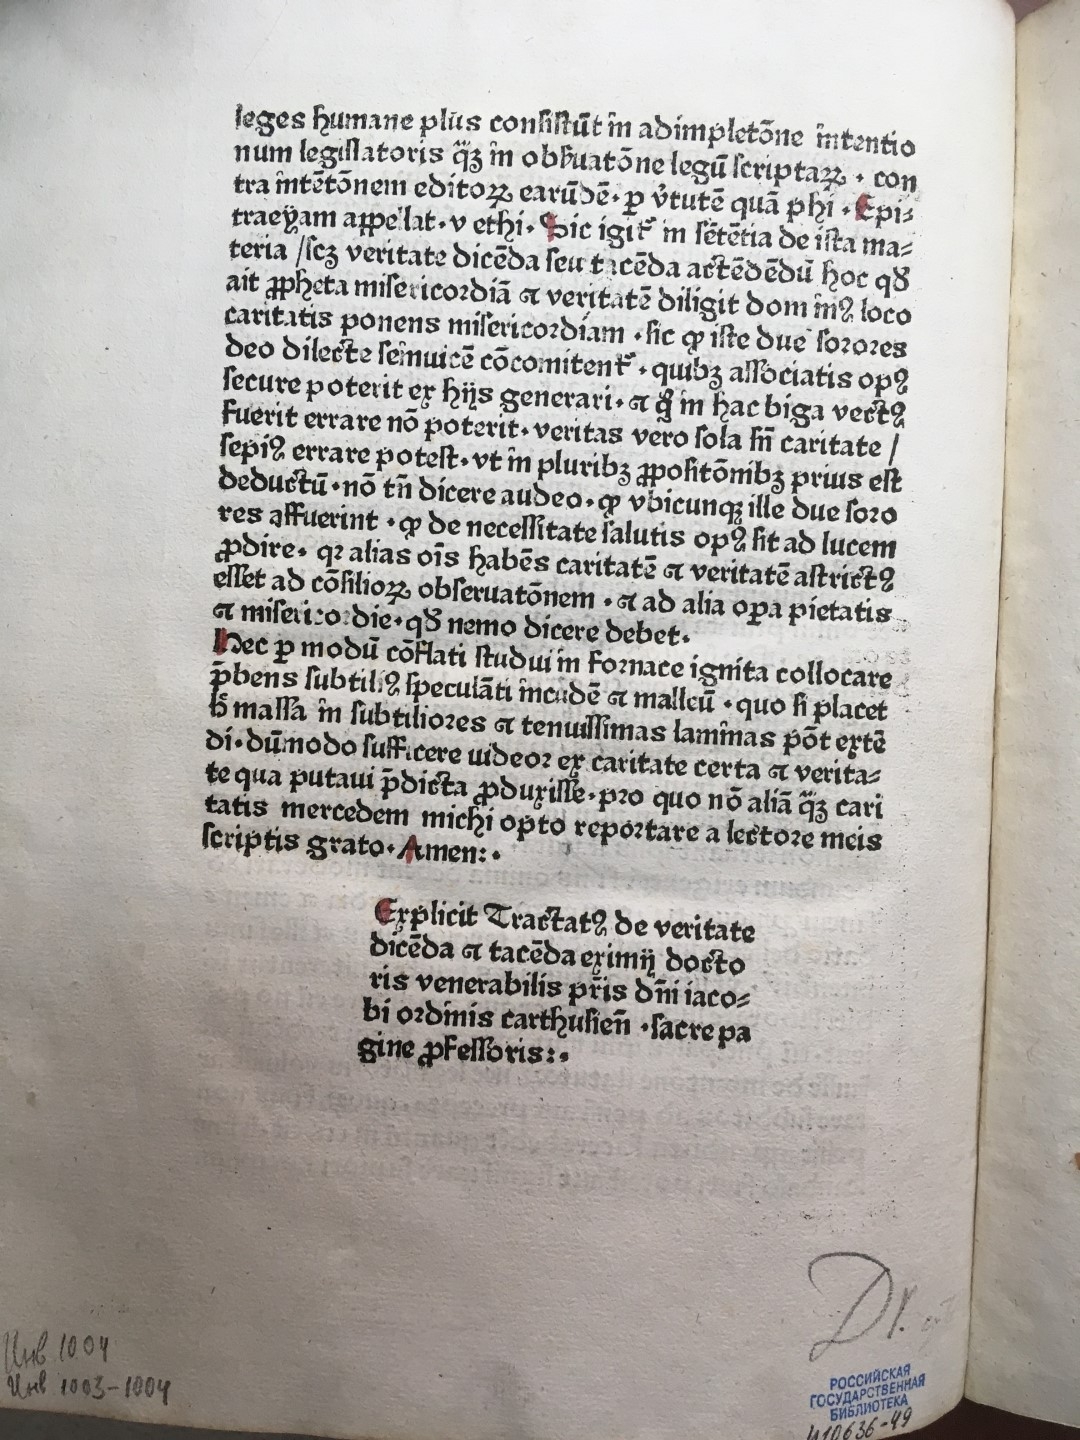 leges humane plus consistūt in adimpletōne intentio
num legislatoris q̄ꝫ in obẜuatōne legū scriptaꝝ · con
tra intētōnem editoꝝ earūdē · ꝑ v̓tutē quā phi · Epi⸗
traeÿam appellat · v ethi · Sic igit᷑ in sētētia de ista ma⸗
teria / scꝫ veritate dicēda seu tacēda actēdēdū hoc qđ
ait ꝓpheta misericordiā ⁊ veritatē diligit dom inꝰ loco
caritatis ponens misericordiam · sic ꝙ iste due sorores
deo dilecte seinuicē cōcomitent᷑ · quibꝫ associatis opꝰ
secure poterit ex hijs generari · ⁊ q̇ in hac biga vectꝰ
fuerit errare nō poterit · veritas vero sola sn̄ caritate /
sepiꝰ errare potest · vt in pluribꝫ ꝓpositōnibꝫ prius est
deductū · nō tn̄ dicere audeo · ꝙ vbicunqꝫ ille due soro
res affuerint · ꝙ de necessitate salutis opꝰ sit ad lucem
ꝓdire · qꝛ alias oīs habēs caritatē ⁊ veritatē astrictꝰ
esset ad cōsilioꝝ obseruatōnem · ⁊ ad alia oꝑa pietatis
⁊ misericordie · qđ nemo dicere debet ·
Hec ꝑ modū cōflati studui in fornace ignita collocare
p̄bens subtiliꝰ speculāti incudē ⁊ malleū · quo si placet
h̄ massa in subtiliores ⁊ tenuissimas laminas pōt extē
di · dūmodo sufficere uideor ex caritate certa ⁊ verita⸗
te qua putaui p̄dicta ꝓduxisse · pro quo nō aliā q̄ꝫ cari
tatis mercedem michi opto reportare a lectore meis
scriptis grato · Amen: ·
Explicit Tractatꝰ de veritate
dicēda ⁊ tacēda eximij docto
ris venerabilis pr̄is dn̄i iaco⸗
bi ordinis carthusien̄ · sacre pa
gine ꝓfessoris: ·
Dr.
Инв 1004
Инв 1003-1004
РОССИЙСКАЯ
ГОСУДАРСТВЕННАЯ
БИБЛИОТЕКА
И10636-49